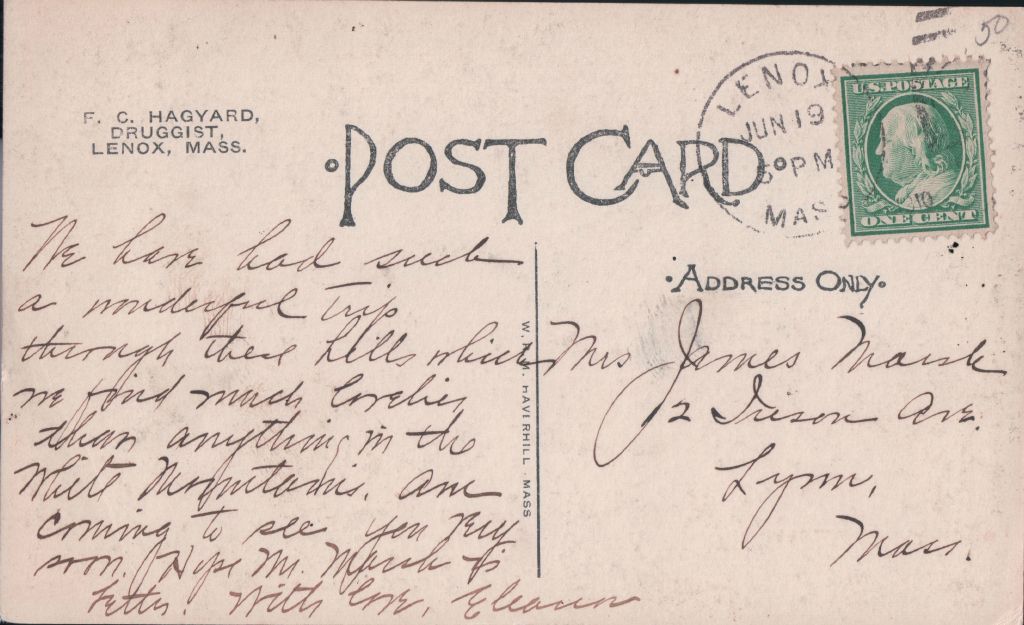 50
F. C. HAGYARD,
DRUGGIST,
LENOX, MASS.
POST CARD
LENOX
JUN 19
PM
MASS
U.S. POSTAGE
ONE CENT
ADDRESS ONLY
We have had such
a wonderful trip
through these hills which
we find much lovelier
than anything in the
White Mountains. Am
coming to see you very
soon. Hope Mr. Marsh is
better. With love, Eleanor
W. HAVERHILL MASS
Mrs James Marsh
12 Ireson Ave.
Lynn,
Mass.